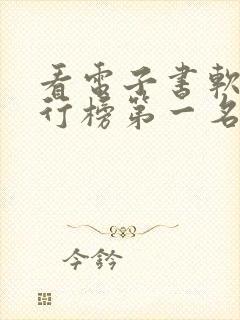 看電子書軟
行榜第一名
今鈐